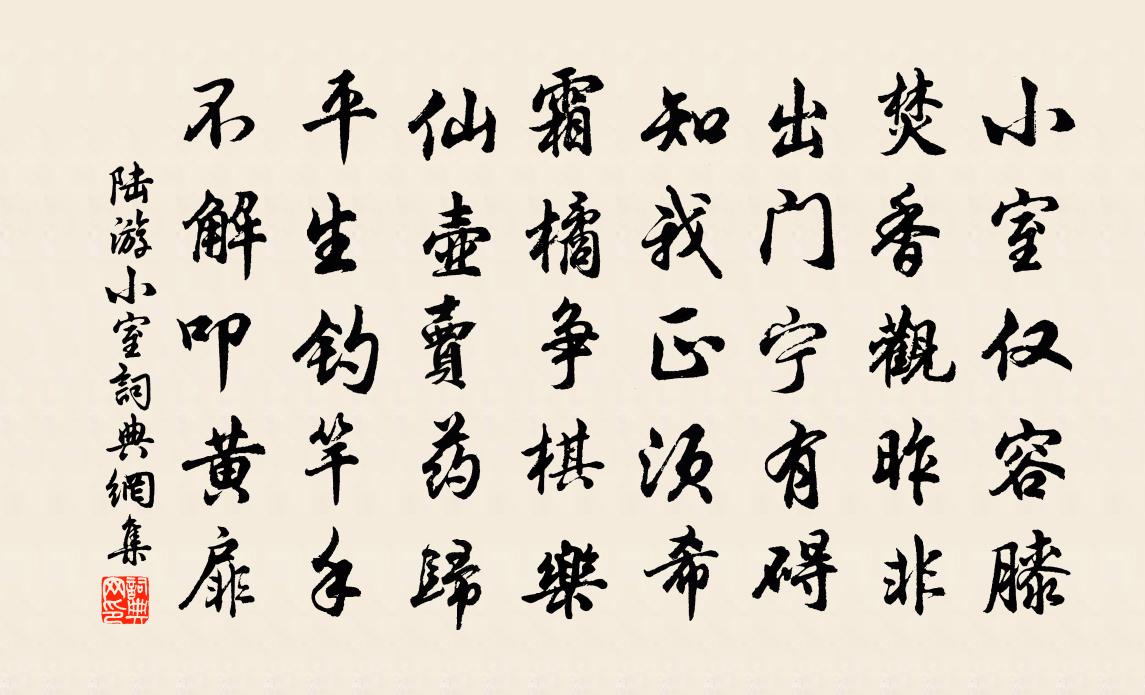 小室仅容膝
焚香觀昨非
出门宁有碍
知我正须希
霜橘争棋樂
仙壺賣药歸
平生釣竿手
不解叩黄扉
陆游小室詞典網集
詞典网印